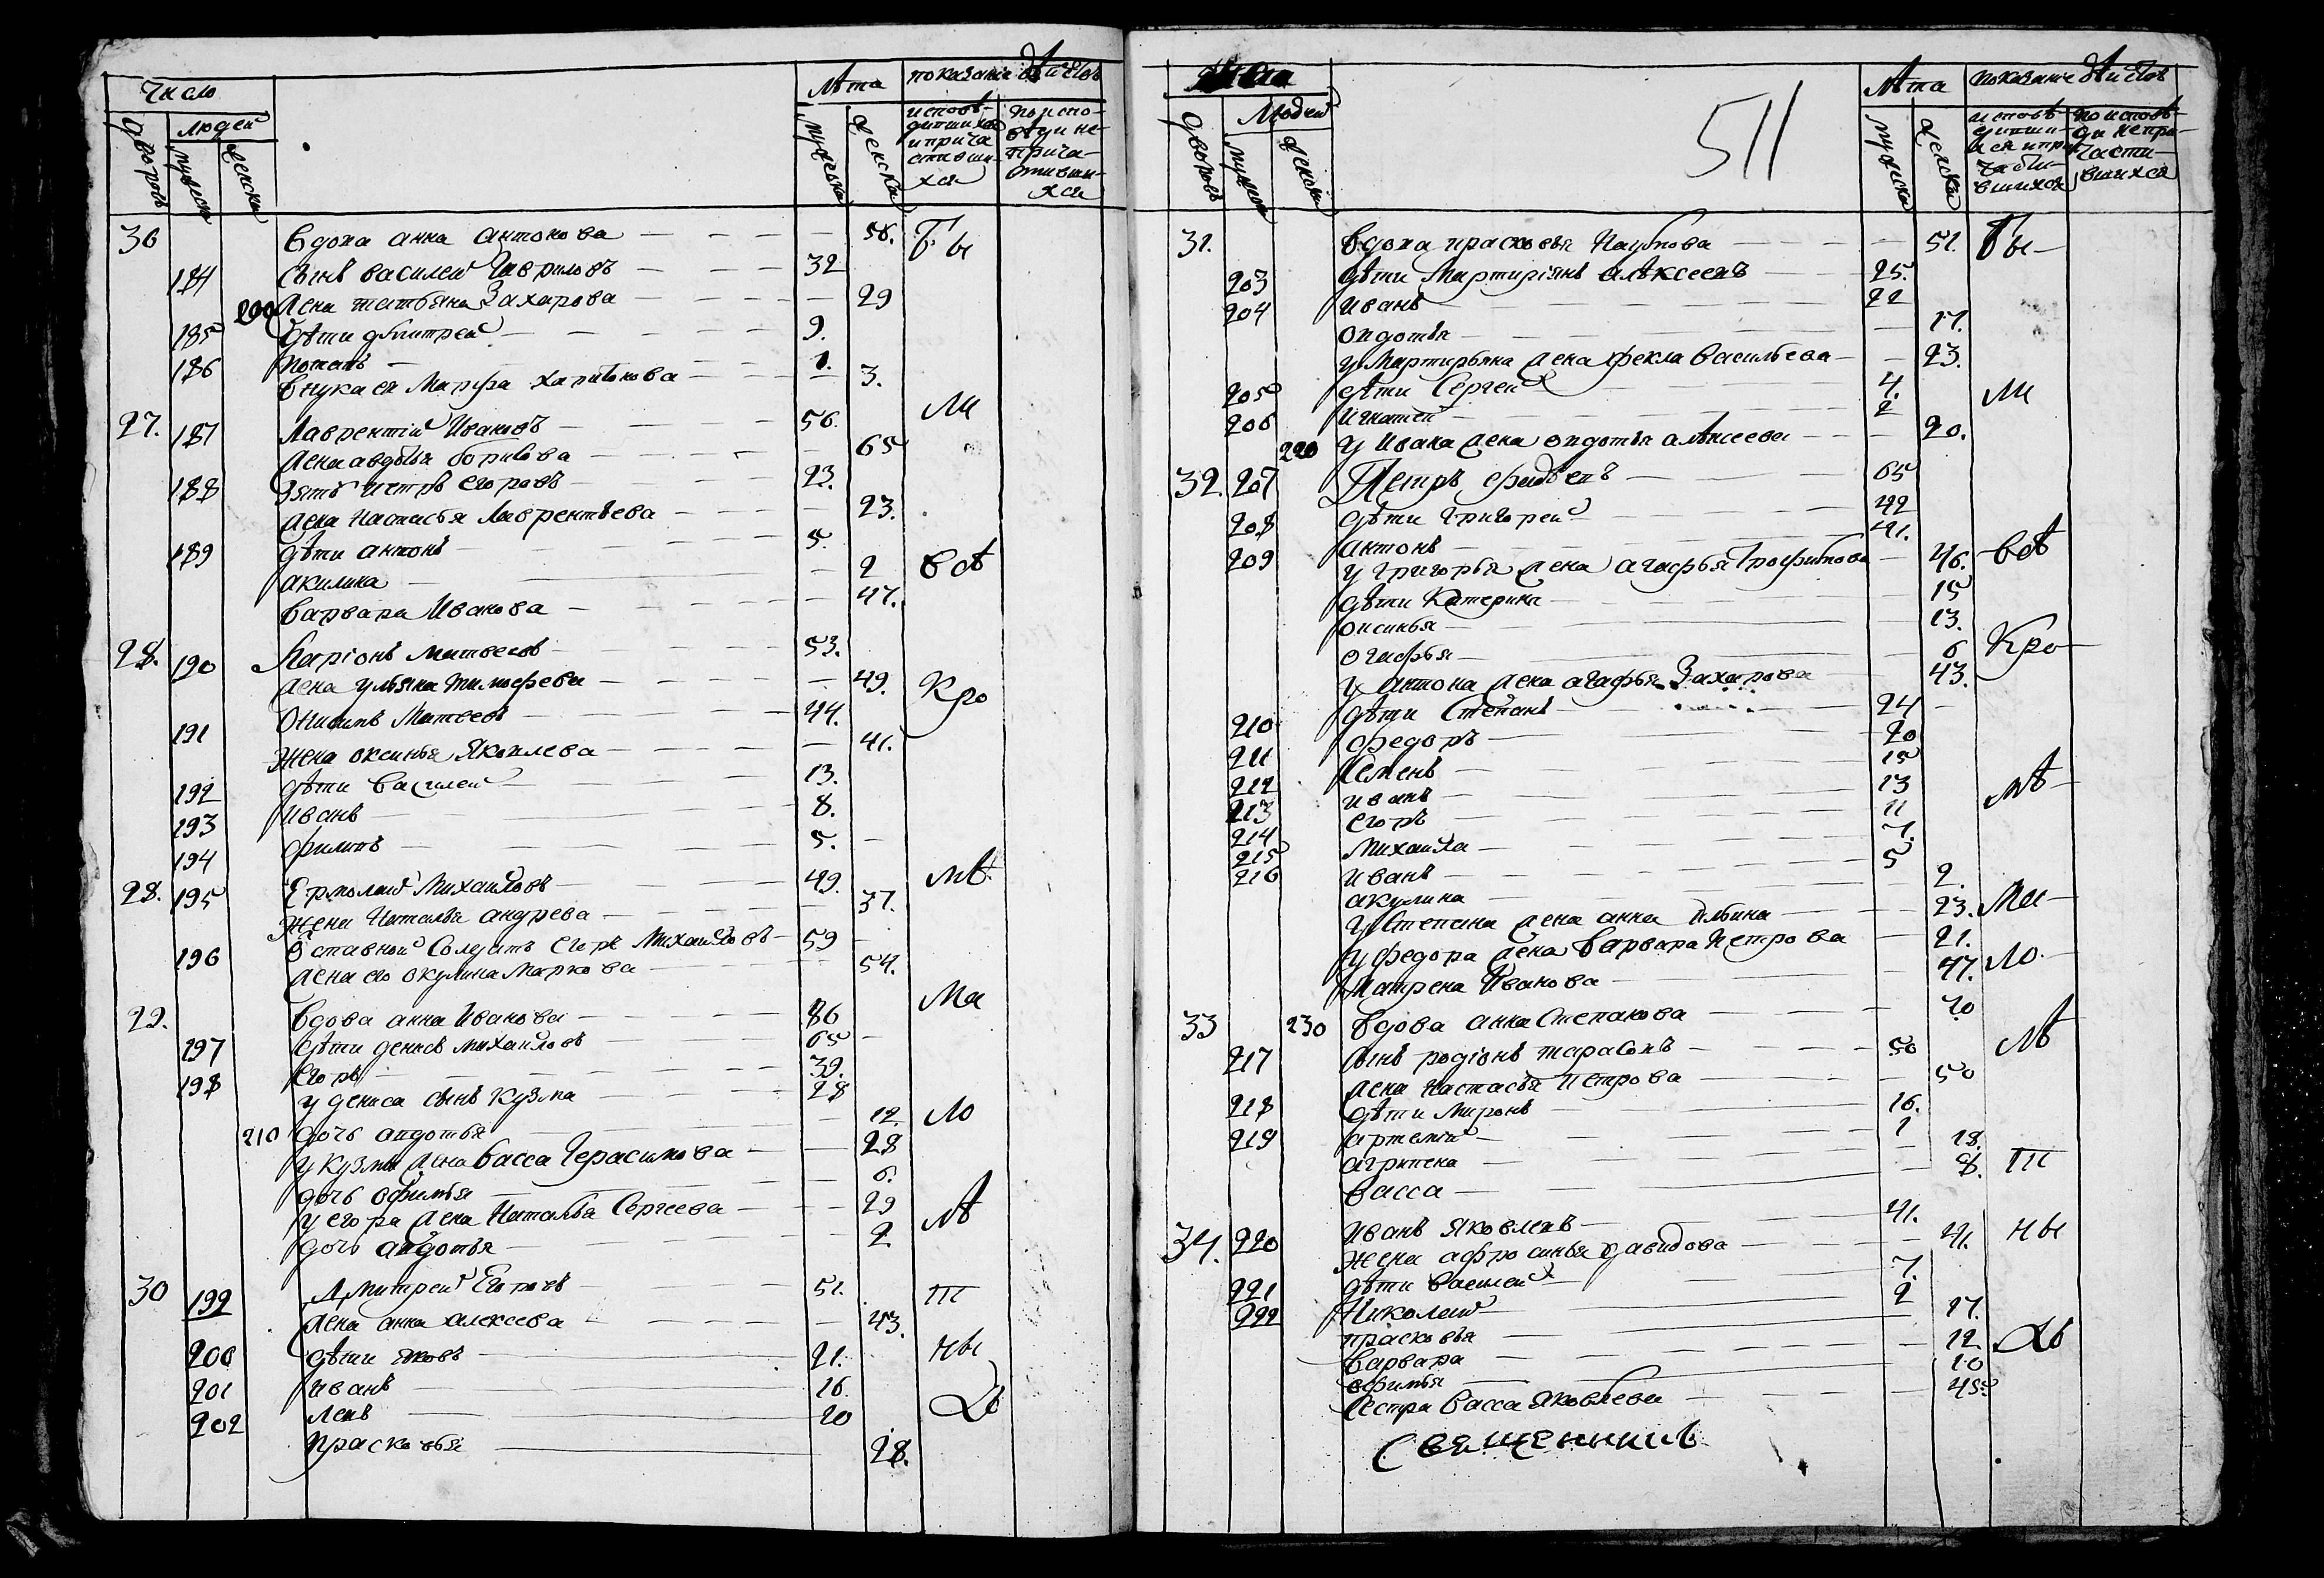 Число
лѣта показание дѣйство
дворовъ людей мужеска женска
мужеска женска исповѣ-
дашихся
и прича
стивши-
хся
по испо-
вѣди не-
прича-
стивши-
хся
36 вдова анна антонова — 56. Бы
184 сынъ василей Гавриловъ — 32
200 жена татьяна Захарова — 29
185 дѣти дмитрей — 9.
186 потапъ — 1.
внука ея Марфа харитонова — 3.
27. 187 Лаврентий Ивановъ — 56. ли
жена авдотья борисова — 65
188 зять петръ егоровъ — 23.
жена настасья Лаврентьева — 23.
189 дѣти антонъ — 5.
акилина — 2 всѣ
варвара Иванова — 47.
28. 190 Ларіонъ матвеевъ — 53.
жена ульяна тимофева — 49. Кро
191 Онисимъ Матвеевъ — 44.
жена оксинья Яковлева — 41.
192 дѣти василей — 13.
193 иванъ — 8.
194 филипъ — 5.
28. 195 Ермолай Михайловъ — 49. мѣ
жена Наталья андрева — 37.
196 Отставной Солдатъ егоръ Михайловъ — 59
жена его окулина Маркова — 54.
29. вдова анна Иванова — 86 Ма
197 дѣти денисъ михайловъ — 65
198 Егоръ — 39.
у дениса сынъ кузма — 28
210 дочь авдотья — 12. ло
у кузмы жена васса Герасимова — 28
дочь офимья — 6.
у егора жена Наталья Сергеева — 29 лѣ
дочь авдотья — 2.
30 199 Дмитрей Егоровъ — 51. т
жена анна алексеева — 43.
200 дѣти яковъ — 21. ны
201 иванъ — 16.
202 левъ — 20
прасковья — 18.
511
Людей
дворовъ мужеска женска
лѣта показание дѣйство
мужеска женска
исповѣ-
давши-
ися и при
части-
вшихся
по исповѣ-
ди непри-
части-
вшихся
31. вдова прасковья Наумова — 51. Бы
203 дѣти Мартиріянъ алѣксеевъ — 25.
204 иванъ — 22
овдотья — 17.
у Мартирьяна жена фекла васильева — 23.
205 дѣти Сергей — 4. ли
206 Игнатей — 2
220 у Ивана жена овдотья алѣксеева — 20.
32. 207 Петръ фадѣевъ — 65
208 дѣти григорей — 42
209 антонъ — 41.
у григорья жена агафья Трофимова — 46. всѣ
дѣти Катерина — 15
оксинья — 13.
огафья — 6 Кро
у антона жена агафья Захарова — 43.
210 дѣти Степанъ — 24
211 федоръ — 20
212 Семенъ — 15
213 иванъ — 13 мѣ
214 егоръ — 11
215 Михаила — 7.
216 иванъ — 5
акулина — 2.
у Степана жена анна ильина — 23. Ма
у федора жена варвара Петрова — 21.
Матрена Иванова — 47. ло
33 230 вдова анна Степанова — 70
217 сынъ родіонъ тарасовъ — 50 лѣ
жена Настасья Петрова — 50
218 дѣти Миронъ — 16.
219 артемій — 1
агрипена — 18.
васса — 8. т
34. 220 Иванъ яковлевъ — 41. ны
жена афросинья давидова — 41.
221 дѣти василей — 7.
222 Николай — 2
прасковья — 17.
варвара — 12
офимья — 10
сестра васса яковлева — 45.
Священникъ